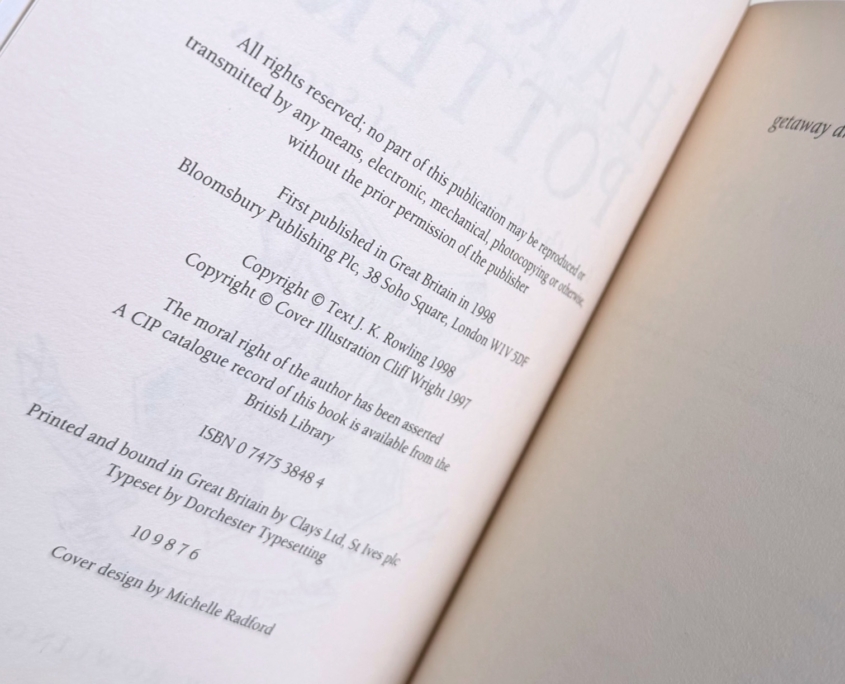 All rights reserved; no part of this publication may be reproduced or
transmitted by any means, electronic, mechanical, photocopying or otherwise,
without the prior permission of the publisher
First published in Great Britain in 1998
Bloomsbury Publishing Plc, 38 Soho Square, London W1V 5DF
Copyright © Text J. K. Rowling 1998
Copyright © Cover Illustration Cliff Wright 1997
The moral right of the author has been asserted
A CIP catalogue record of this book is available from the
British Library
ISBN 0 7475 3848 4
Printed and bound in Great Britain by Clays Ltd, St Ives plc
Typeset by Dorchester Typesetting
10 9 8 7 6
Cover design by Michelle Radford
getaway